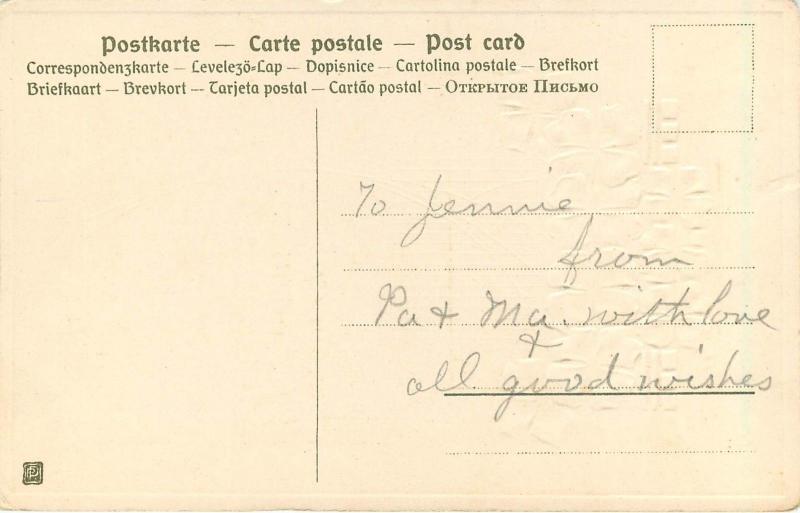 Postkarte — Carte postale — Post card
Correspondenzkarte — Levelezö-Lap — Dopisnice — Cartolina postale — Brefkort
Briefkaart — Brevkort — Tarjeta postal — Cartão postal — Открытое Письмо
To Jennie
from
Pa + Ma. with love
+
all good wishes